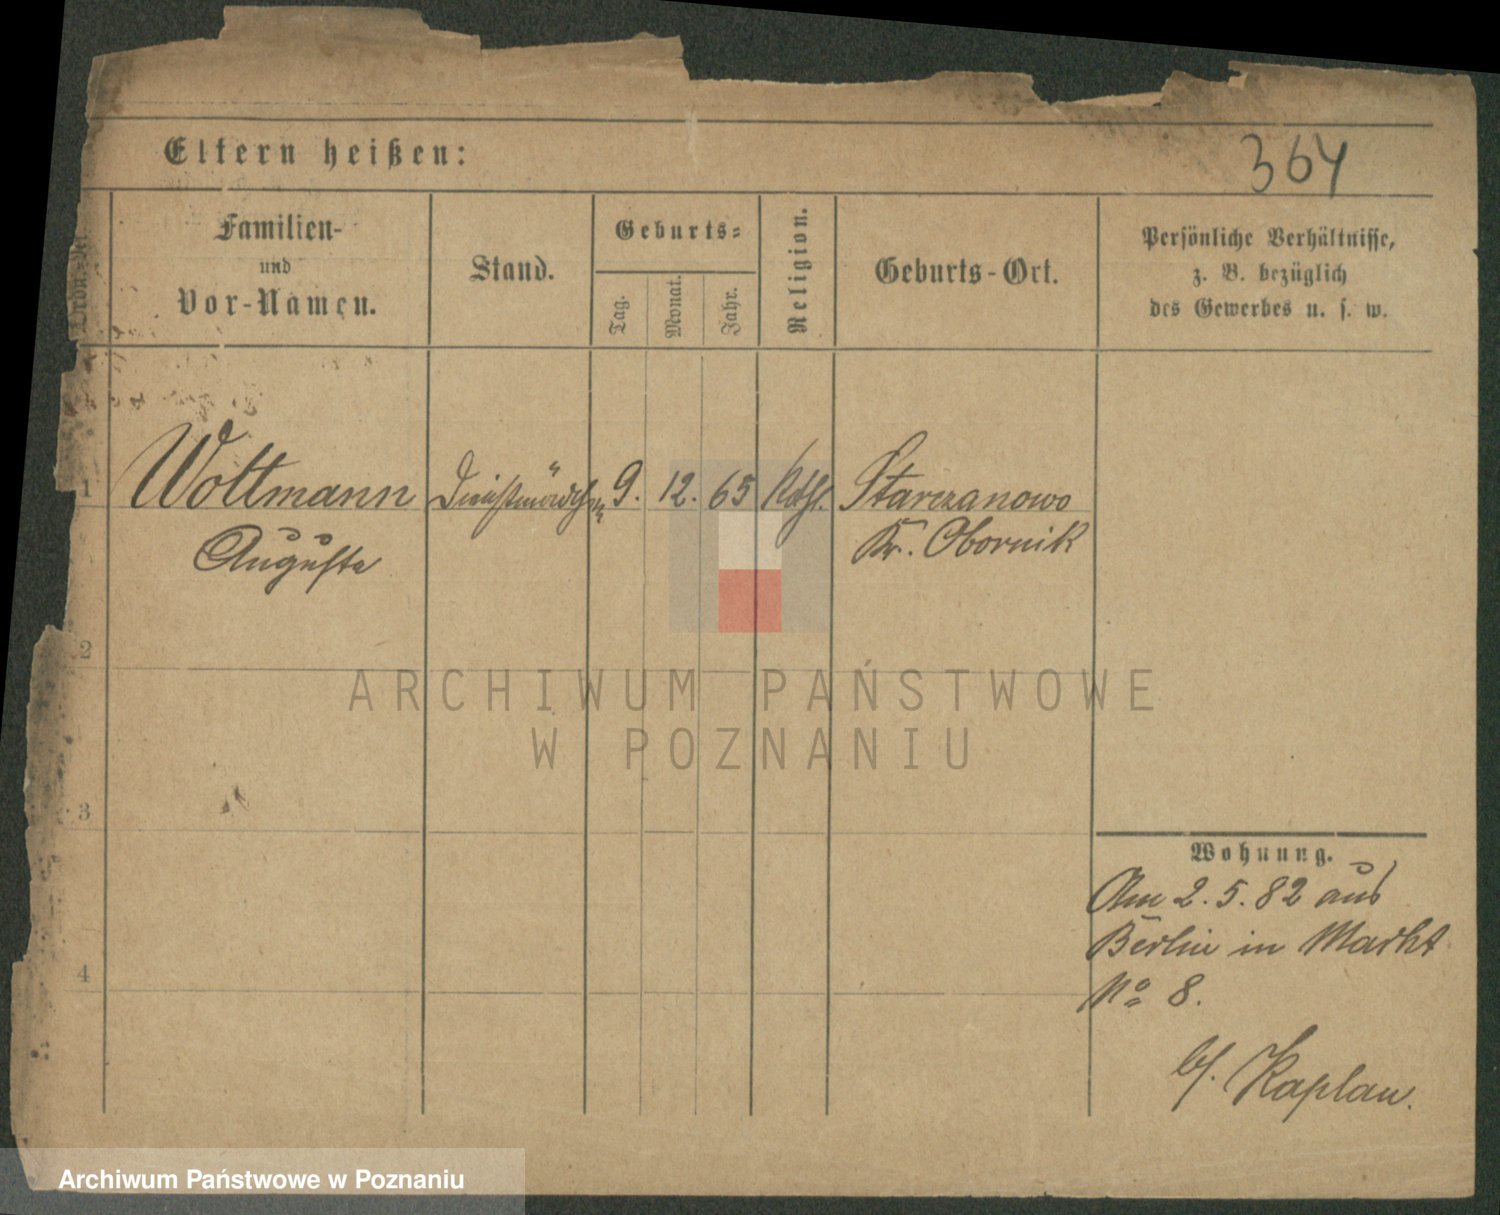 Eltern heißen:
364
Ordn.-Nr.
Familien-
und
Vor-Namen.
Stand.
Geburts-
Tag.
Monat.
Jahr.
Religion.
Geburts-Ort.
Persönliche Verhältnisse,
z. B. bezüglich
des Gewerbes u. s. w.
1
Woltmann
Auguste
Dienstmädchen
9.
12.
65
Kathl.
Starczanowo
Kr. Obornik
2
3
4
Wohnung.
Am 2.5.82 aus
Berlin in Markt
No 8.
b/. Kaplan.
ARCHIWUM PAŃSTWOWE
W POZNANIU
Archiwum Państwowe w Poznaniu